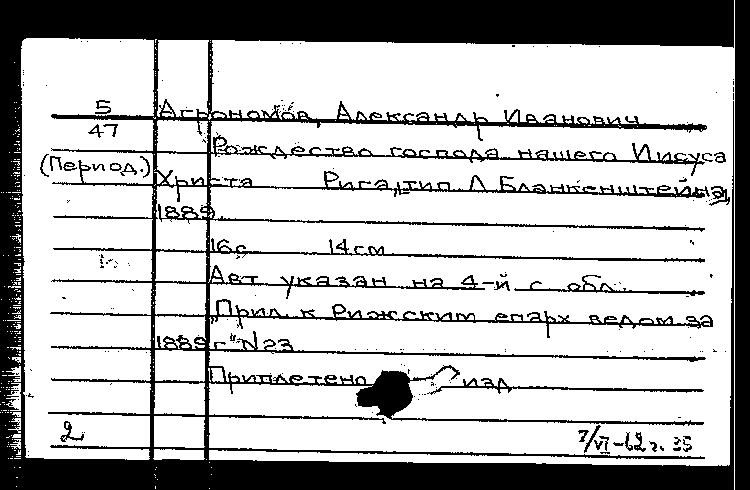 5
47
(Период.)
Агрономов, Александр Иванович
Рождество господа нашего Иисуса
Христа Рига, тип Л Бланкенштейна,
1889
16с 14 см
Авт указан на 4-й с обл.
"Прил. к Рижским епарх ведом за
1889 г" N23
Приплетено изд
2
7/VI-62 г. 35